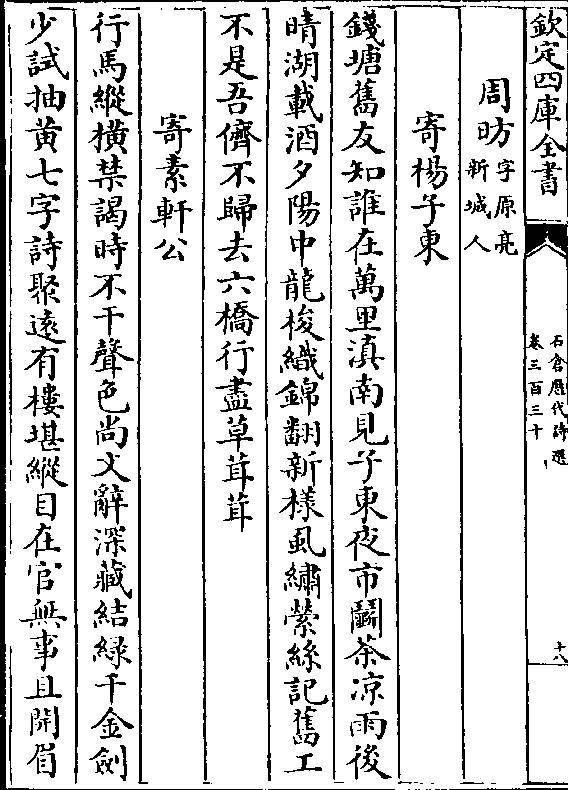 欽定四庫全書
石倉歷代詩選
卷三百三十一
十八
周昉 字原亮
新城人
寄楊子東
錢塘舊友知誰在萬里滇南見子東夜市鬭茶凉雨後
晴湖載酒夕陽中龍梭織錦翻新様虱繡縈絲記舊工
不是吾儕不歸去六橋行盡草茸茸
寄素軒公
行馬縱橫禁謁時不干聲色尚文辭深藏結緑千金劍
少試抽黄七字詩聚逺有樓堪縱目在官無事且開眉